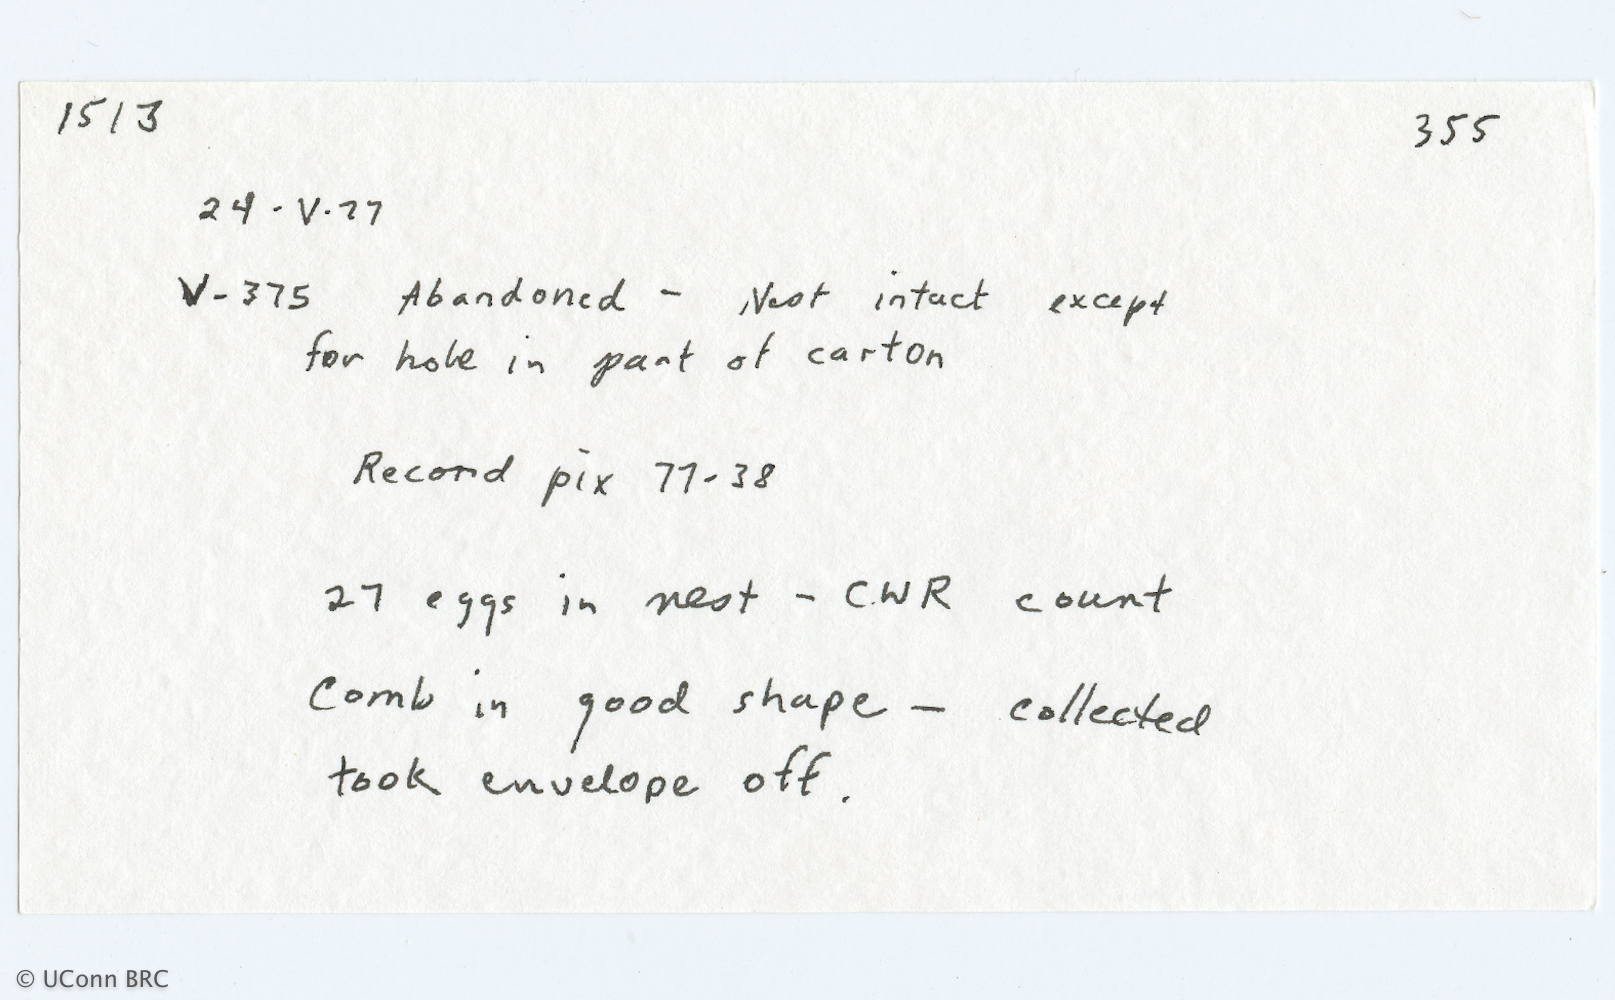 1513
355
24-V-77
V-375 Abandoned - Nest intact except
for hole in part of carton
Record pix 77-38
27 eggs in nest - CWR count
Comb in good shape - collected
took envelope off.
© UConn BRC